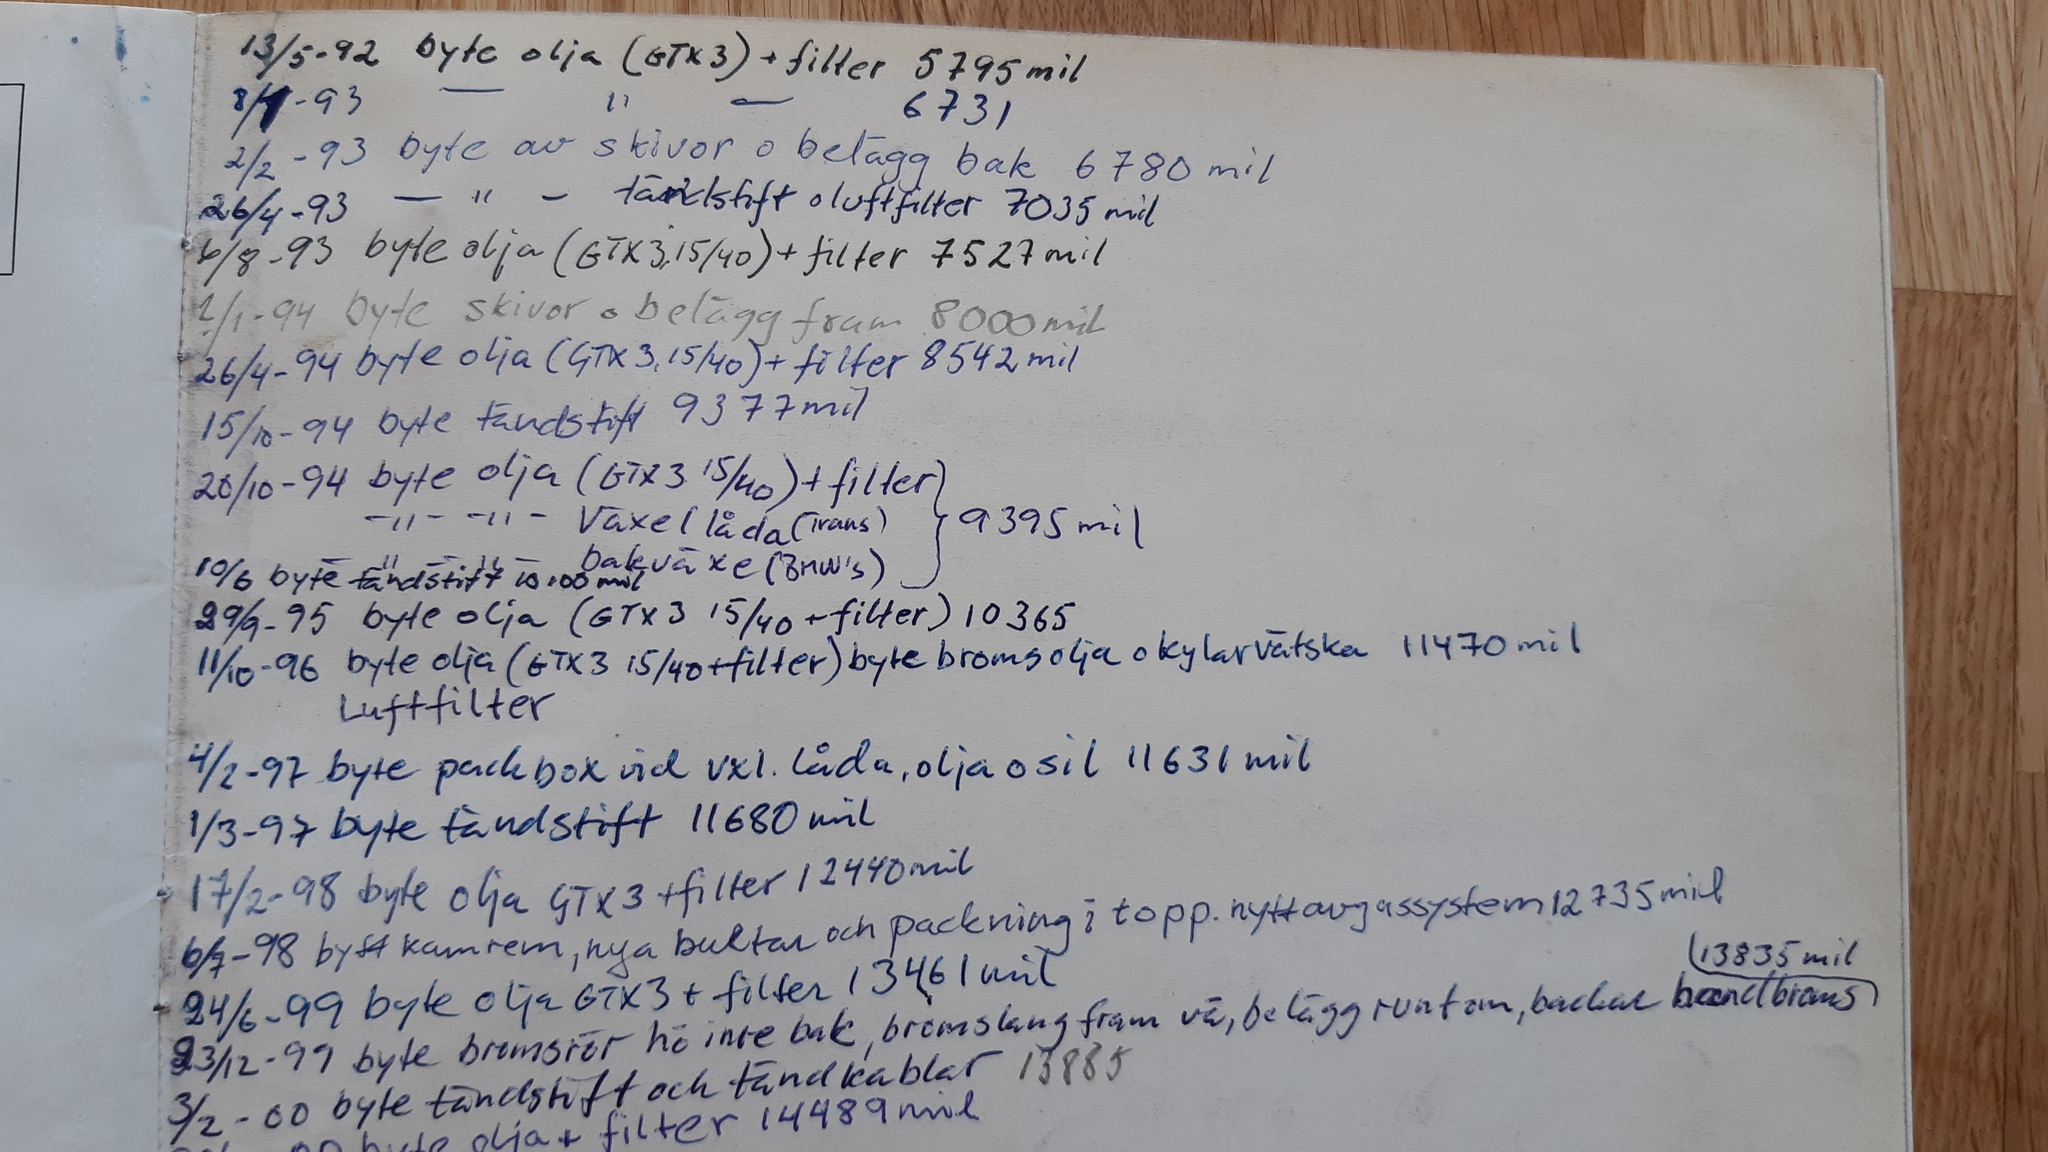 13/5-92 byte olja (GTX3) + filter 5795 mil
8/1-93 — " — 6731
2/2-93 byte av skivor o belägg bak 6780 mil
26/4-93 — " — tändstift o luftfilter 7035 mil
6/8-93 byte olja (GTX3, 15/40) + filter 7527 mil
2/1-94 byte skivor o belägg fram 8000 mil
26/4-94 byte olja (GTX3, 15/40) + filter 8542 mil
15/10-94 byte tändstift 9377 mil
20/10-94 byte olja (GTX3 15/40) + filter
-"- -"- Växellåda (Trans) } 9395 mil
-"- -"- bakväxe (BMW's)
10/6 byte tändstift 10.100 mil
29/9-95 byte olja (GTX3 15/40 + filter) 10365
11/10-96 byte olja (GTX3 15/40 + filter) byte bromsolja o kylarvätska 11470 mil
Luftfilter
4/2-97 byte packbox vid vxl. låda, olja o sil 11631 mil
1/3-97 byte tändstift 11680 mil
17/2-98 byte olja GTX3 + filter 12440 mil
6/7-98 bytt kamrem, nya bultar och packning i topp. nytt avgassystem 12735 mil
24/6-99 byte olja GTX3 + filter 13461 mil
13835 mil
23/12-99 byte bromsrör hö inre bak, bromslang fram vä, belägg runt om, backar handbroms
3/2-00 byte tändstift och tändkablar 13885
00 byte olja + filter 14489 mil